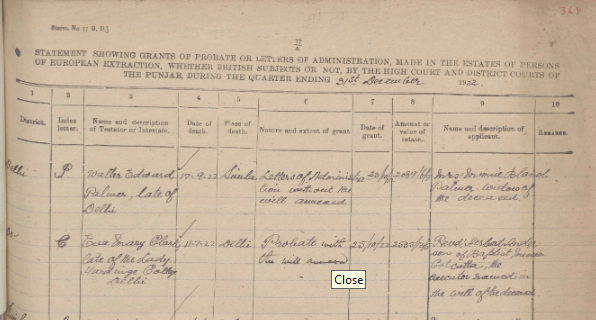 369
Statro. No. 77 G. D.]
STATEMENT SHOWING GRANTS OF PROBATE OR LETTERS OF ADMINISTRATION, MADE IN THE ESTATES OF PERSONS
OF EUROPEAN EXTRACTION, WHETHER BRITISH SUBJECTS OR NOT, BY THE HIGH COURT AND DISTRICT COURTS OF
THE PUNJAB, DURING THE QUARTER ENDING 31st December 1922.
1 2 3 4 5 6 7 8 9 10
District. Index letter. Name and description of Testator or Intestate. Date of death. Place of death. Nature and extent of grant. Date of grant. Amount or value of estate. Name and description of applicant. REMARKS.
Delhi P Walter Edward 17-9-22 Simla Letters of Administra Mrs. Minnie
Palmer, late of tion without the Palmer widow of
Delhi will annexed. the deceased.
C Eva Mary Clark 11-7-22 Delhi Probate with 25/10/22 Revd.
late of the Lady the will annexed of Baptist
Hardinge Calcutta, the
Delhi executor named in
the will of the deceased
Close